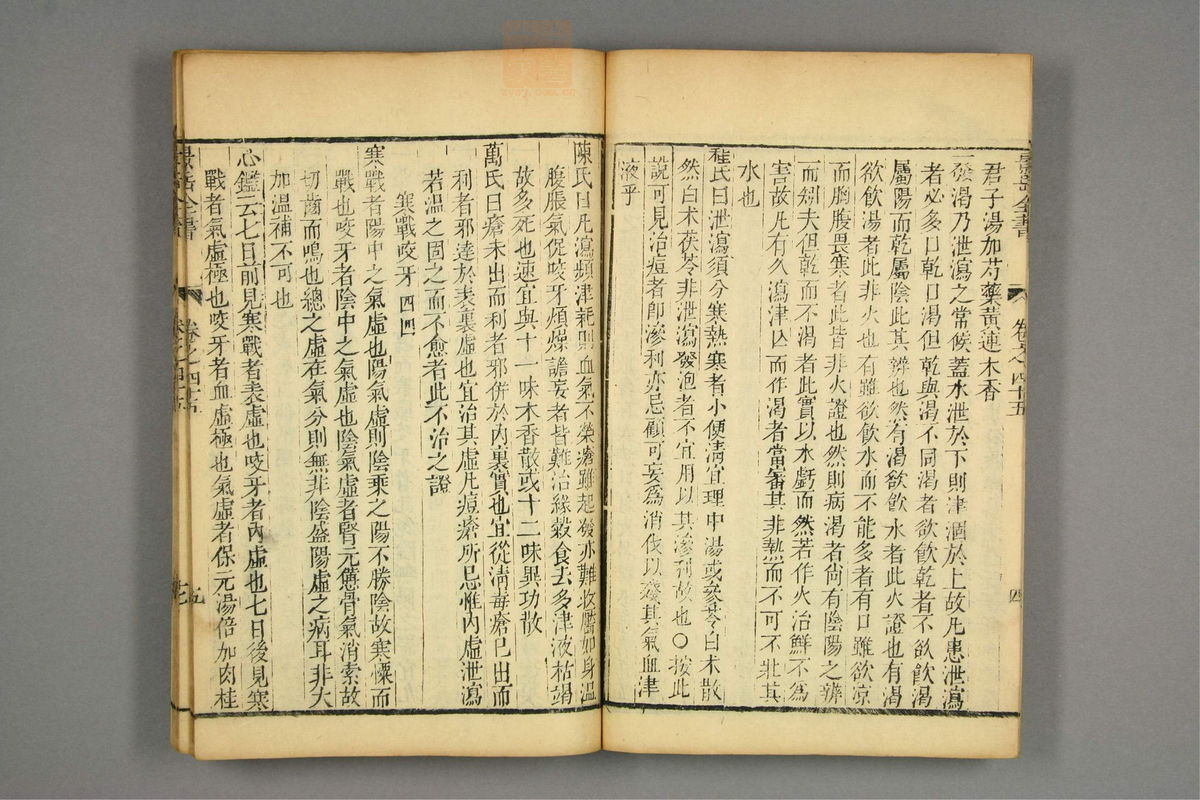 君子湯加芍藥黃連木香
一發渴乃泄瀉之常候蓋水泄於下則津涸於上故凡患泄瀉
者必多口乾口渴但乾與渴不同渴者欲飲乾者不欲飲渴
屬陽而乾屬陰此其辨也然有渴欲飲水者此火證也有渴
欲飲湯者此非火也有雖欲飲水而不能多者有口雖欲凉
而胸腹畏寒者此皆非火證也然則病渴者尙有陰陽之辨
而矧夫但乾而不渴者此實以水虧而然若作火治鮮不爲
害故凡有久瀉津亾而作渴者當審其非熱而不可不壯其
水也
程氏曰泄瀉須分寒熱寒者小便清宜理中湯或參苓白朮散
然白朮茯苓非泄瀉發泡者不宜用以其滲利故也○按此
說可見治痘者卽滲利亦忌顧可妄爲消伐以殘其氣血津
液乎
景岳全書
卷之四十五
四
陳氏曰凡瀉頻津耗則血氣不榮瘡雖起發亦難收靨如身溫
腹脹氣促咬牙煩燥譫妄者皆難治緣穀食去多津液枯竭
故多死也速宜與十一味木香散或十二味異功散
萬氏曰瘡未出而利者邪併於內裏實也宜從清毒瘡已出而
利者邪達於表裏虛也宜治其虛凡痘瘡所忌惟內虛泄瀉
若溫之固之而不愈者此不治之證
寒戰咬牙 四四
寒戰者陽中之氣虛也陽氣虛則陰乘之陽不勝陰故寒慄而
戰也咬牙者陰中之氣虛也陰氣虛者腎元憊骨氣消索故
切齒而鳴也總之虛在氣分則無非陰盛陽虛之病耳非大
加溫補不可也
心鑑云七日前見寒戰者表虛也咬牙者內虛也七日後見寒
戰者氣虛極也咬牙者血虛極也氣虛者保元湯倍加肉桂
景岳全書
卷之四十五
五